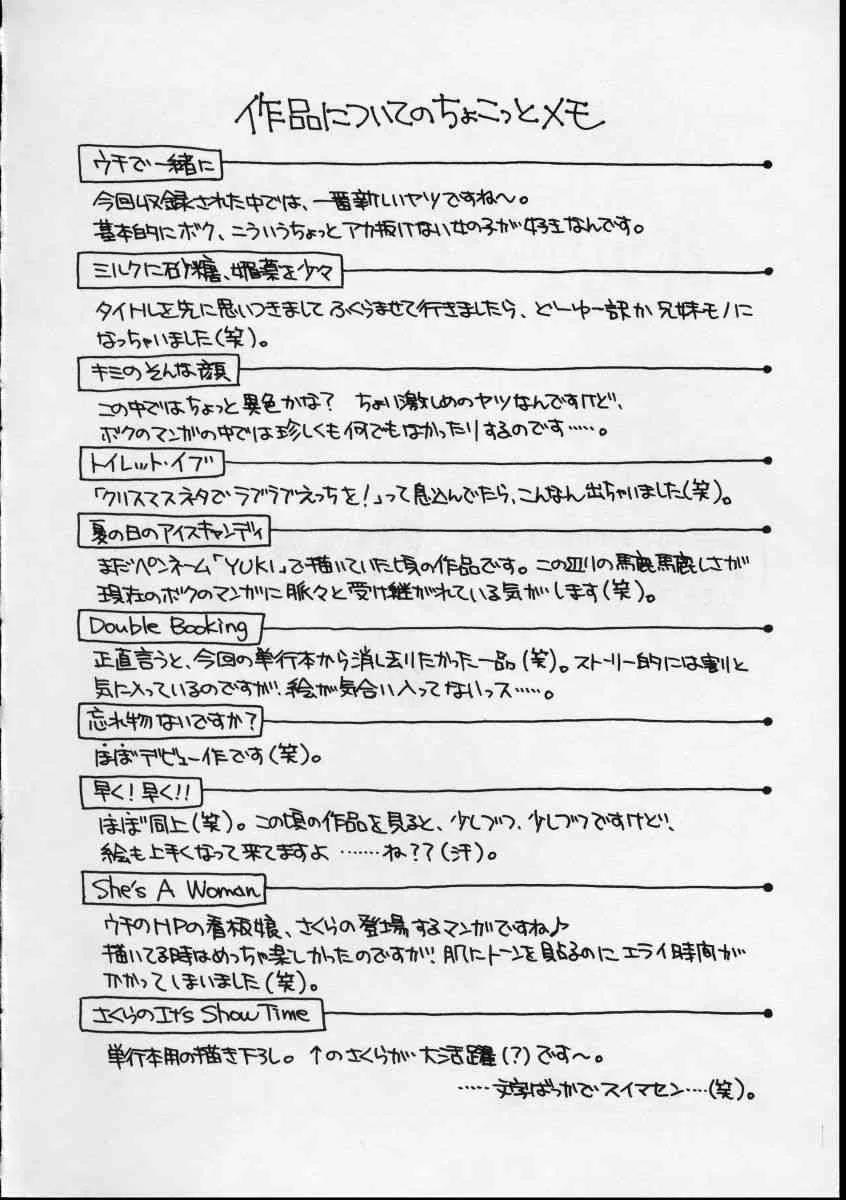 作品についてのちょこっとメモ
ウチで一緒に
今回収録された中では、一番新しいヤツですね〜。
基本的にボク、こういうちょっとアカ抜けない女の子が好きなんです。
ミルクに砂糖、媚薬を少々
タイトルを先に思いつきまして ふくらませて行きましたら、どーゆー訳か兄妹モノに
なっちゃいました(笑)。
キミのそんな顔
この中ではちょっと異色かな? ちょい激しめのヤツなんですけど、
ボクのマンガの中では珍しくも何でもなかったりするのです……。
トイレット・イブ
「クリスマスネタでラブラブえっちを!」って息込んでたら、こんなん出ちゃいました(笑)。
夏の日のアイスキャンディ
まだペンネーム「YUKI」で描いていた頃の作品です。この辺りの馬鹿馬鹿しさが
現在のボクのマンガに脈々と受け継がれている気がします(笑)。
Double Booking
正直言うと、今回の単行本から消し去りたかった一品(笑)。ストーリー的には割りと
気に入っているのですが、絵が気合い入ってないっス……。
忘れ物ないですか?
ほぼデビュー作です(笑)。
早く!早く!!
ほぼ同上(笑)。この頃の作品を見ると、少しづつ、少しづつですけど、
絵も上手くなって来てますよ ……ね??(汗)。
She's A Woman
ウチのHPの看板娘、さくらの登場するマンガですね♪
描いてる時はめっちゃ楽しかったのですが、肌にトーンを貼るのに エライ時間が
かかってしまいました(笑)。
さくらのIt's Show Time
単行本用の描き下ろし。↑のさくらが大活躍(?)です〜。
……文字ばっかでスイマセン……(笑)。